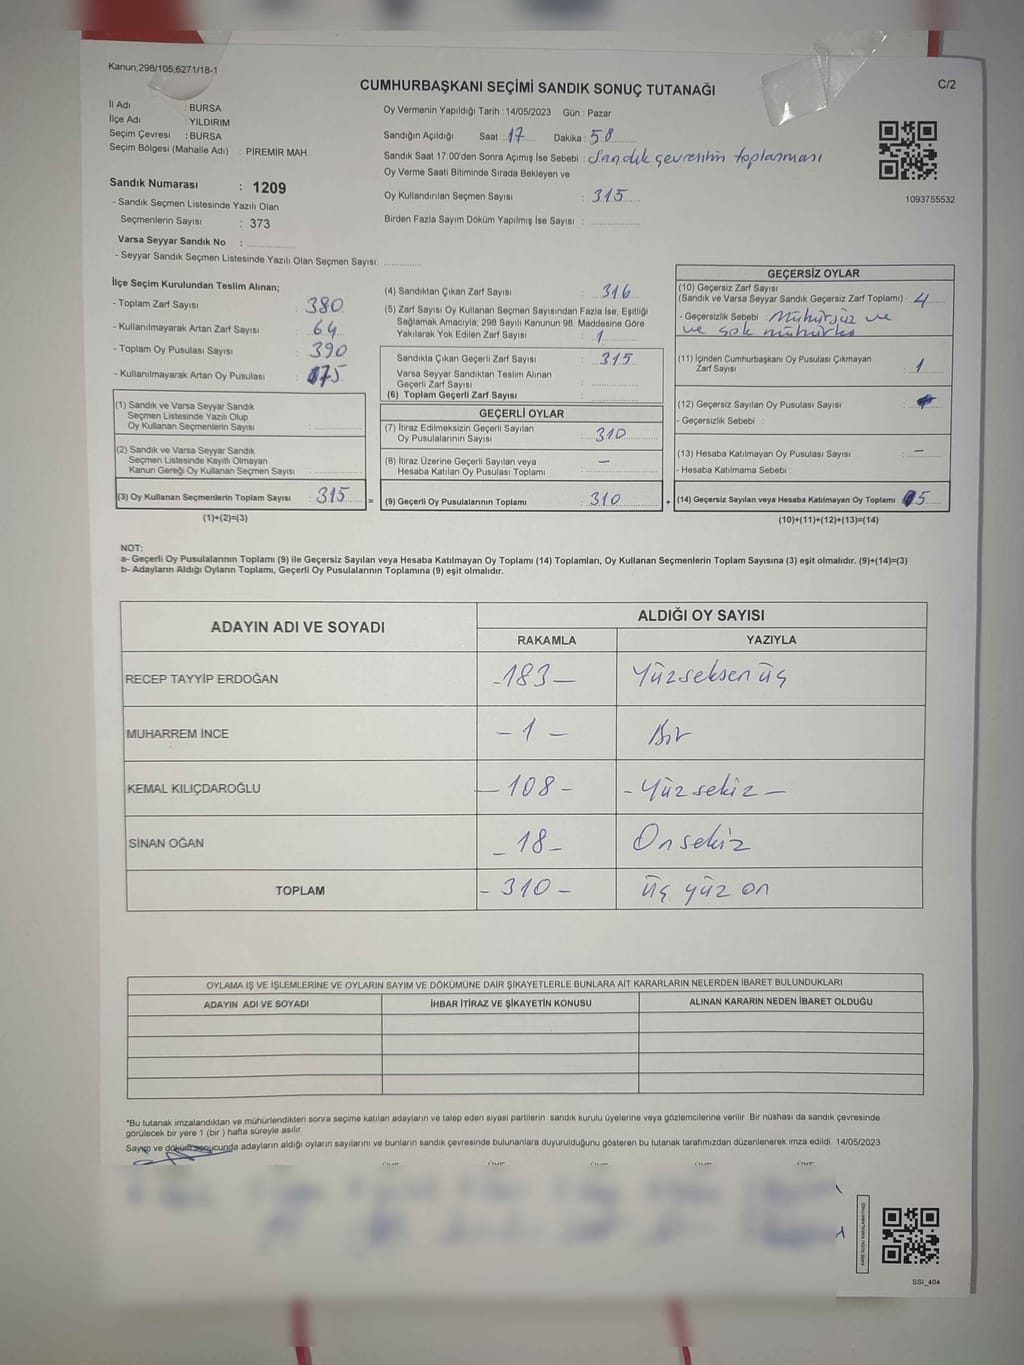 Kanun;298/105;6271/18-1
CUMHURBAŞKANI SEÇİMİ SANDIK SONUÇ TUTANAĞI
C/2
İl Adı : BURSA
İlçe Adı : YILDIRIM
Seçim Çevresi : BURSA
Seçim Bölgesi (Mahalle Adı) : PİREMİR MAH.
Sandık Numarası : 1209
- Sandık Seçmen Listesinde Yazılı Olan
Seçmenlerin Sayısı : 373
Varsa Seyyar Sandık No :
- Seyyar Sandık Seçmen Listesinde Yazılı Olan Seçmen Sayısı:
Oy Vermenin Yapıldığı Tarih :14/05/2023 Gün : Pazar
Sandığın Açıldığı Saat : 17 Dakika : 58
Sandık Saat 17:00'den Sonra Açımış İse Sebebi : Sandık çevresinin toplanması
Oy Verme Saati Bitiminde Sırada Bekleyen ve
Oy Kullandırılan Seçmen Sayısı : 315
Birden Fazla Sayım Döküm Yapılmış İse Sayısı :
1093755532
İlçe Seçim Kurulundan Teslim Alınan;
- Toplam Zarf Sayısı : 380
- Kullanılmayarak Artan Zarf Sayısı : 64
- Toplam Oy Pusulası Sayısı : 390
- Kullanılmayarak Artan Oy Pusulası : 75
(1) Sandık ve Varsa Seyyar Sandık
Seçmen Listesinde Yazılı Olup
Oy Kullanan Seçmenlerin Sayısı :
(2) Sandık ve Varsa Seyyar Sandık
Seçmen Listesinde Kayıtlı Olmayan
Kanun Gereği Oy Kullanan Seçmen Sayısı :
(3) Oy Kullanan Seçmenlerin Toplam Sayısı : 315 =
(1)+(2)=(3)
(4) Sandıktan Çıkan Zarf Sayısı : 316
(5) Zarf Sayısı Oy Kullanan Seçmen Sayısından Fazla İse, Eşitliği
Sağlamak Amacıyla; 298 Sayılı Kanunun 98. Maddesine Göre
Yakılarak Yok Edilen Zarf Sayısı : 1
Sandıkta Çıkan Geçerli Zarf Sayısı : 315
Varsa Seyyar Sandıktan Teslim Alınan
Geçerli Zarf Sayısı :
(6) Toplam Geçerli Zarf Sayısı :
GEÇERLİ OYLAR
(7) İtiraz Edilmeksizin Geçerli Sayılan
Oy Pusulalarının Sayısı : 310
(8) İtiraz Üzerine Geçerli Sayılan veya
Hesaba Katılan Oy Pusulası Toplamı : –
(9) Geçerli Oy Pusulalarının Toplamı : 310 +
GEÇERSİZ OYLAR
(10) Geçersiz Zarf Sayısı
(Sandık ve Varsa Seyyar Sandık Geçersiz Zarf Toplamı) : 4
- Geçersizlik Sebebi : Mühürsüz ve
ve çok mühürlü
(11) İçinden Cumhurbaşkanı Oy Pusulası Çıkmayan
Zarf Sayısı : 1
(12) Geçersiz Sayılan Oy Pusulası Sayısı :
- Geçersizlik Sebebi :
(13) Hesaba Katılmayan Oy Pusulası Sayısı : –
- Hesaba Katılmama Sebebi :
(14) Geçersiz Sayılan veya Hesaba Katılmayan Oy Toplamı : 5
(10)+(11)+(12)+(13)=(14)
NOT:
a- Geçerli Oy Pusulalarının Toplamı (9) ile Geçersiz Sayılan veya Hesaba Katılmayan Oy Toplamı (14) Toplamları, Oy Kullanan Seçmenlerin Toplam Sayısına (3) eşit olmalıdır. (9)+(14)=(3)
b- Adayların Aldığı Oyların Toplamı, Geçerli Oy Pusulalarının Toplamına (9) eşit olmalıdır.
ADAYIN ADI VE SOYADI
ALDIĞI OY SAYISI
RAKAMLA YAZIYLA
RECEP TAYYİP ERDOĞAN -183- Yüzseksen üç
MUHARREM İNCE -1- Bir
KEMAL KILIÇDAROĞLU -108- -Yüzsekiz-
SİNAN OĞAN -18- Onsekiz
TOPLAM -310- üç yüz on
OYLAMA İŞ VE İŞLEMLERİNE VE OYLARIN SAYIM VE DÖKÜMÜNE DAİR ŞİKAYETLERLE BUNLARA AİT KARARLARIN NELERDEN İBARET BULUNDUKLARI
ADAYIN ADI VE SOYADI İHBAR İTİRAZ VE ŞİKAYETİN KONUSU ALINAN KARARIN NEDEN İBARET OLDUĞU
*Bu tutanak imzalandıktan ve mühürlendikten sonra seçime katılan adayların ve talep eden siyasi partilerin sandık kurulu üyelerine veya gözlemcilerine verilir .Bir nüshası da sandık çevresinde
görülecek bir yere 1 (bir ) hafta süreyle asılır.
Sayım ve döküm sonucunda adayların aldığı oyların sayılarını ve bunların sandık çevresinde bulunanlara duyurulduğunu gösteren bu tutanak tarafımızdan düzenlenerek imza edildi. 14/05/2023
SSI_404